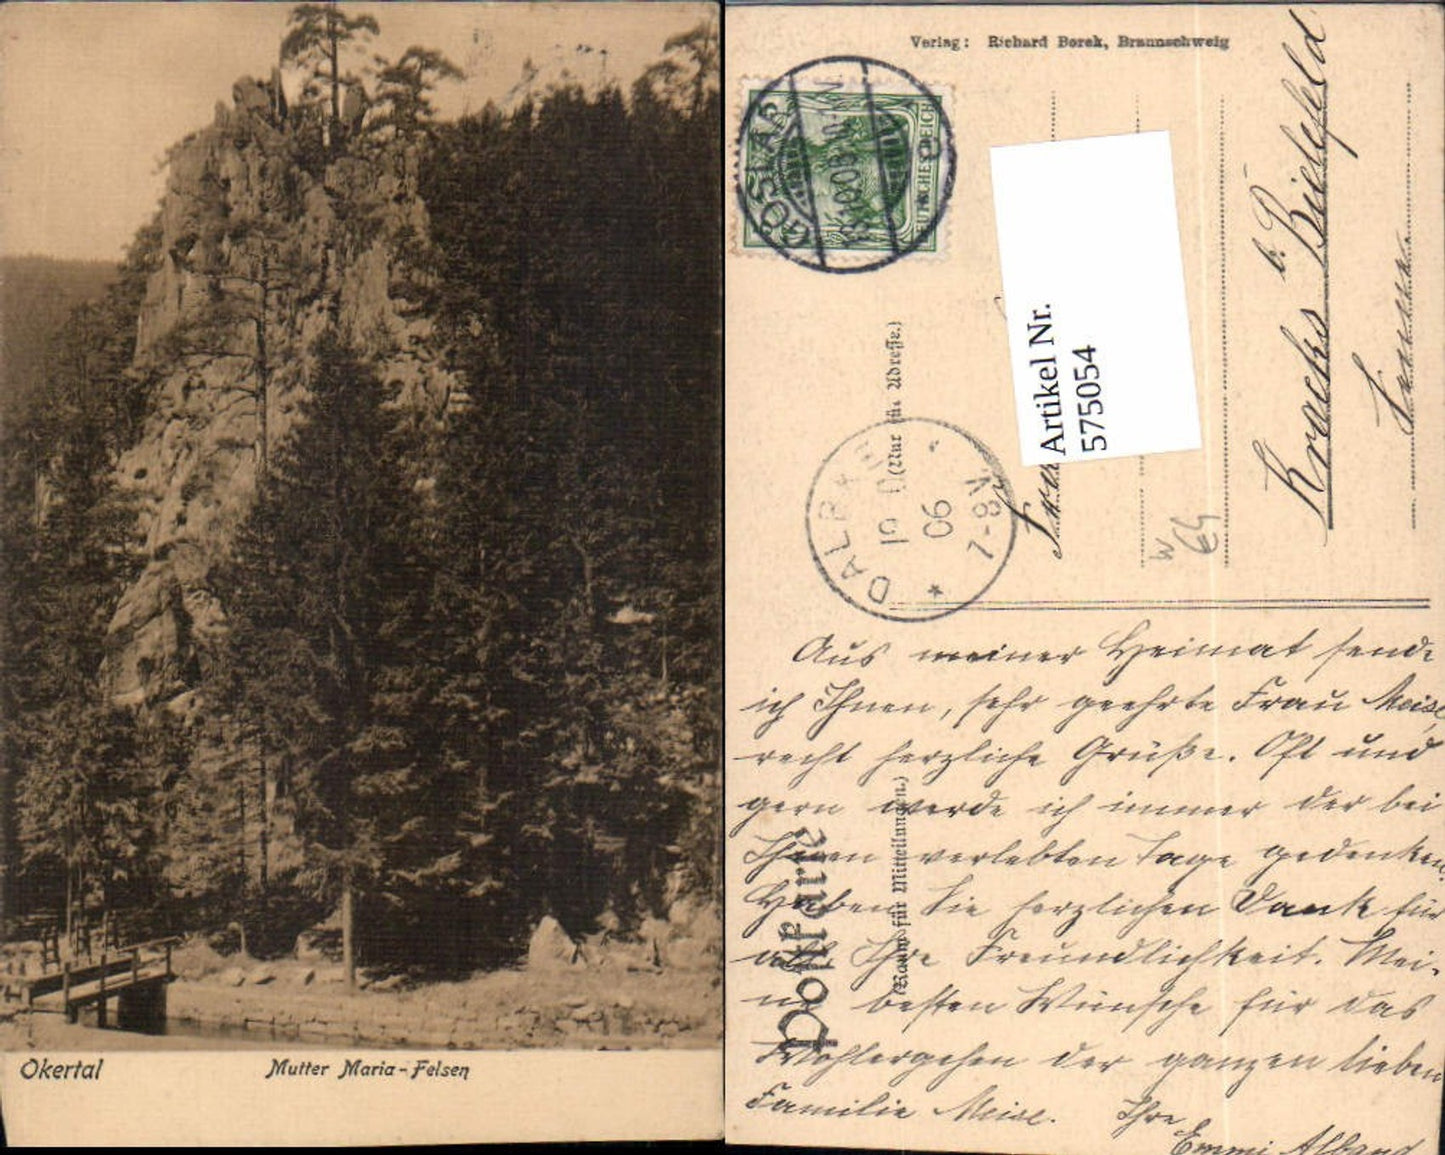 Okertal
Mutter Maria-Felsen
Verlag: Richard Borek, Braunschweig
GOSLAR
DEUTSCHES REICH
Artikel Nr.
575054
(Nur für Adresse.)
06
7-8V
Kracks b. Bielefeld
Postkarte
(Raum für Mitteilungen.)
Aus meiner Heimat sende
ich Ihnen, sehr geehrte Frau Meise,
recht herzliche Grüße. Oft und
gern werde ich immer der bei
Ihnen verlebten Tage gedenken.
Haben Sie herzlichen Dank für
all Ihre Freundlichkeit. Mei-
ne besten Wünsche für das
Wohlergehen der ganzen lieben
Familie Meise. Ihre
Emmi